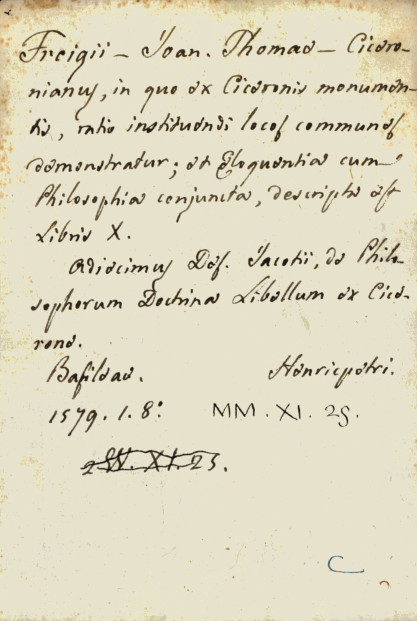 Freigii – Joan. Thomae – Cicero-
nianus, in quo ex Ciceronis monumen-
tis, ratio instituendi locos communes
demonstratur; et Eloquentia cum
Philosophia conjuncta, descripta est
Libris X.
Adiecimus Des. Jacotii, de Philo-
sophorum Doctrina Libellum ex Cice-
rone.
Basileae. Henricpetri.
1579. 1. 8°. MM. XI. 25.
XI. 25.
C